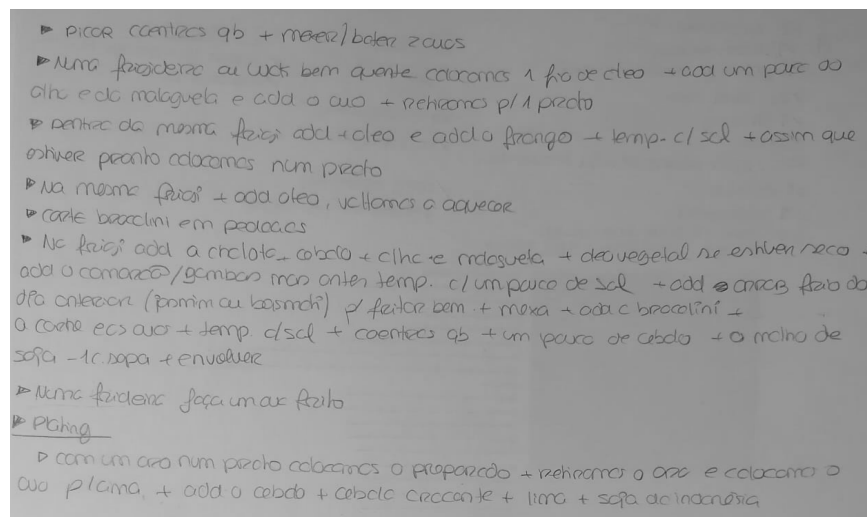 ▶ PICAR COENTROS qb + mexer/bater 2 ovos
▶ Numa frigideira ou Wok bem quente colocamos 1 fio de óleo + add um pouco do
alho e da malagueta e add o ovo + retiramos p/ 1 prato
▶ Dentro da mesma frigi add + óleo e add o frango + temp. c/ sal + assim que
estiver pronto colocamos num prato
▶ Na mesma frigi + add óleo, voltamos a aquecer
▶ Corte broccolini em pedaços
▶ Na frigi add a chalota, cebola + alho e malagueta + óleo vegetal se estiver seco +
add o camarão/gambas mas antes temp. c/ um pouco de sal + add o arroz frio do
dia anterior (jasmim ou basmati) p/ fritar bem + mexa + add o brocolini +
a carne e os ovos + temp. c/ sal + coentros qb + um pouco de cebola + o molho de
soja - 1c. sopa + envolver
▶ Numa frigideira faça um ovo frito
▶ Plating
▷ com um aro num prato colocamos o preparado + retiramos o aro e colocamos o
ovo p/ cima, + add o cebola + cebola crocante + lima + soja da indonésia